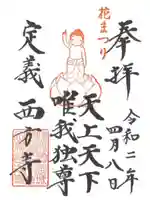 奉拝
令和二年
四月八日
花まつり
天上天下
唯我独尊
定義
西方寺